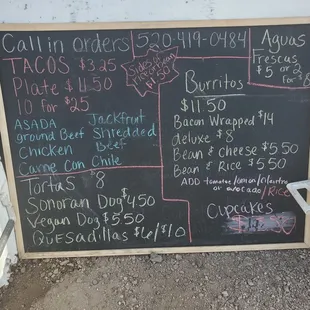 Call in orders 520-419-0484
TACOS $3.25
Plate $11.50
10 for $25
ASADA Jackfruit
ground Beef Shredded
Chicken Beef
Carne Con Chile
Tortas $8
Sonoran Dog $4.50
Vegan Dog $5.50
Quesadillas $6/$10
Sides
$1.50
Burritos
$11.50
Bacon Wrapped $14
deluxe $8
Bean & cheese $5.50
Bean & Rice $5.50
ADD tomatoes/onion/cilantro
or avocado/Rice
Cupcakes
Aguas
Frescas
$5 or 2
for $8